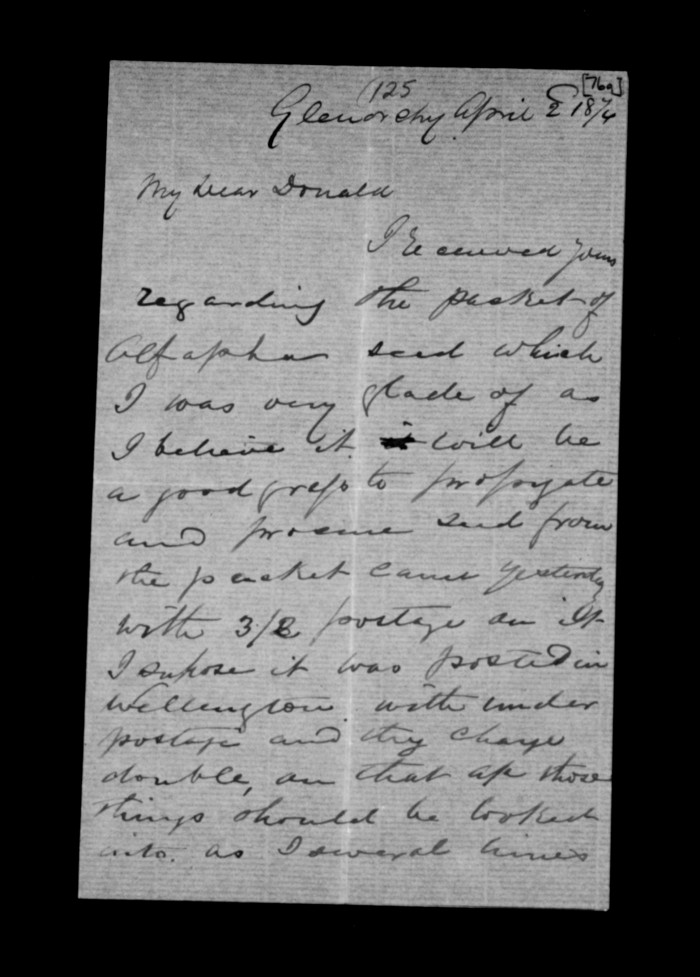 [76a]
(125
Glenorchy April 2 1874
My Dear Donald
I Received yours
regarding the packet of
Alfapha seed which
I was very glade of as
I beheive it will be
a good grass to propigate
and procure seed from
the packet came yesterday
with 3/8 postage on it
I supose it was posted in
Wellington with under
postage and they charge
double, on that
things should be looked
into. as I several times